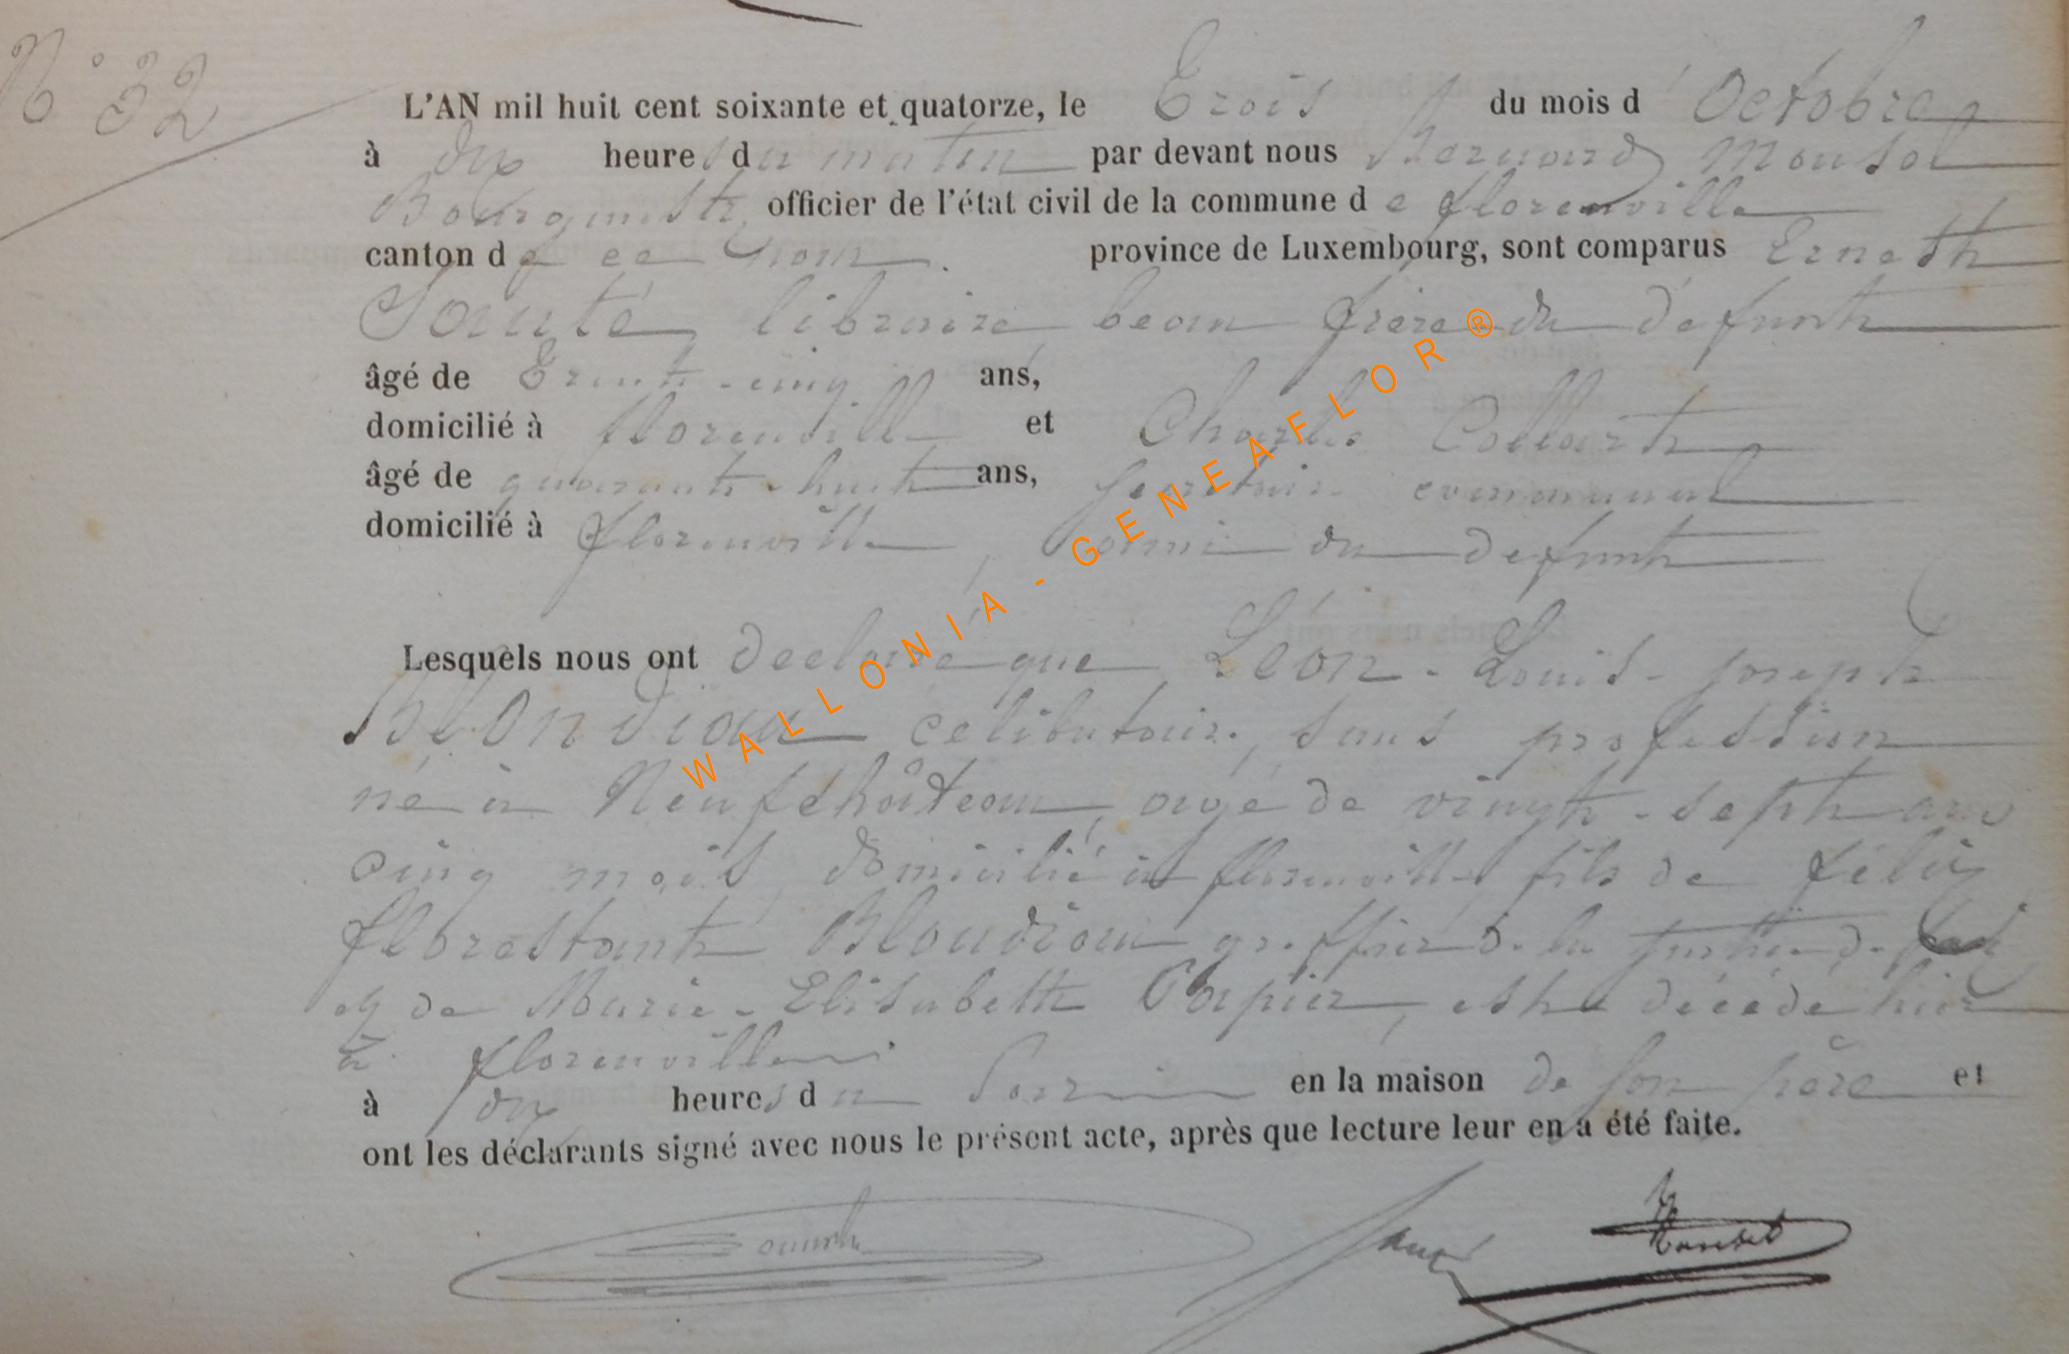 N° 32
L'AN mil huit cent soixante et quatorze, le Trois du mois d'Octobre
à dix heures du matin par devant nous Bernard Mousel
Bourgmestre officier de l'état civil de la commune de florenville
canton de ce nom. province de Luxembourg, sont comparus Ernest
Santé, libraire beau frère du défunt
âgé de Trente-cinq ans,
domicilié à florenville et Charles Collart
âgé de quarante-huit ans, secrétaire communal
domicilié à florenville, ami du defunt
Lesquels nous ont declaré que Léon-Louis-joseph
Blondiau célibataire, sans profession
né à Neufchâteau, agé de vingt-sept ans
cinq mois, domicilié à florenville, fils de félix
florestant Blondiau greffier de la justice de paix
et de Marie-Elisabeth Papier, est décédé hier
à florenville
à dix heures du en la maison de son père et
ont les déclarants signé avec nous le présent acte, après que lecture leur en a été faite.
Santé Mousel
WALLONIA - GENEAFLOR®